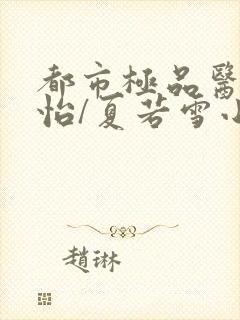 都市極品醫
怡/夏若雪小
趙琳